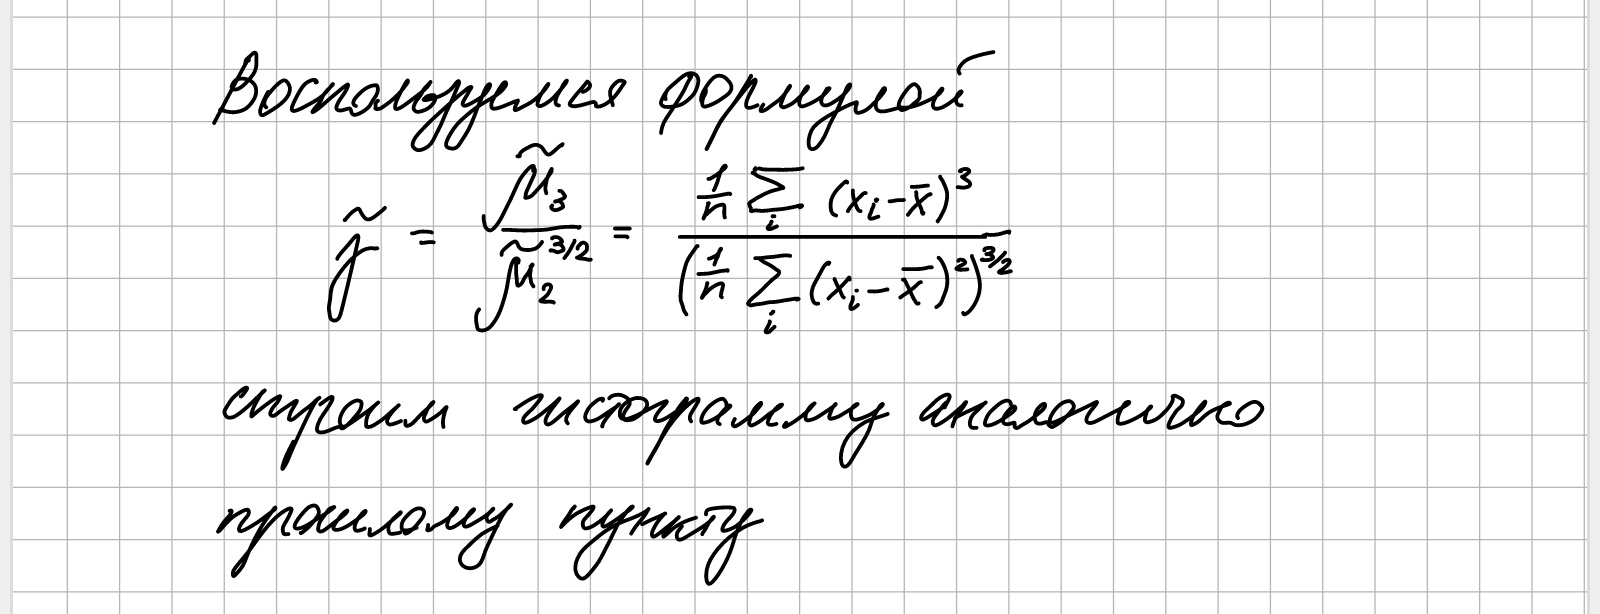 Воспользуемся формулой
γ̃ = μ̃₃ / μ̃₂^(3/2) = (1/n ∑ᵢ (xᵢ − x̄)³) / (1/n ∑ᵢ (xᵢ − x̄)²)^(3/2)
строим гистограмму аналогично
прошлому пункту